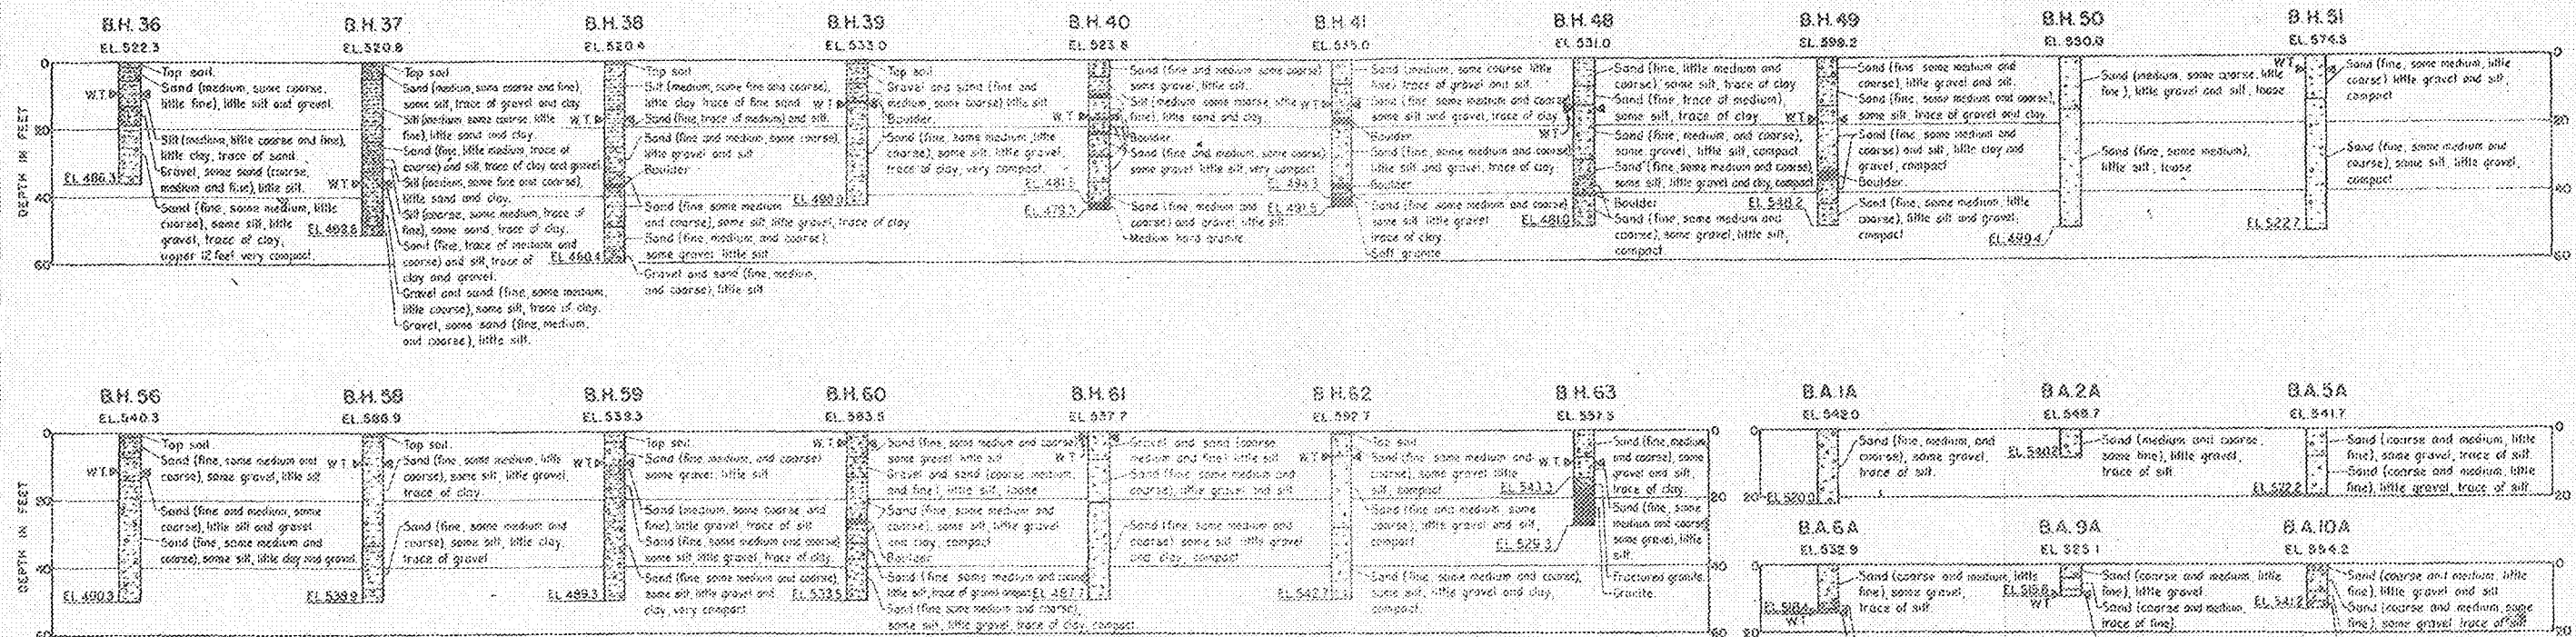 B.H. 36
EL. 522.3
Top soil.
Sand (medium, some coarse,
little fine), little silt and gravel.
W.T.
Silt (medium, little coarse and fine),
little clay, trace of sand.
Gravel, some sand (coarse,
medium and fine), little silt.
Sand (fine, some medium, little
coarse), some silt, little
gravel, trace of clay,
upper 12 feet very compact.
B.H. 37
EL. 520.8
Top soil
Sand (medium, some coarse and fine),
some silt, trace of gravel and clay
Silt (medium some coarse, little
fine), little sand and clay.
Sand (fine, little medium, trace of
coarse) and silt, trace of clay and gravel.
W.T.
Silt (medium, some fine and coarse),
little sand and clay.
Silt (coarse, some medium, trace of
fine), some sand, trace of clay.
Sand (fine, trace of medium and
coarse) and silt, trace of
clay and gravel.
Gravel and sand (fine, some medium,
little coarse), some silt, trace of clay.
Gravel, some sand (fine, medium,
and coarse), little silt.
B.H. 38
EL. 520.4
Top soil
Silt (medium, some fine and coarse),
little clay trace of fine sand
W.T.
Sand (fine, trace of medium) and silt.
Sand (fine and medium, some coarse),
little gravel and silt
Boulder
Sand (fine, some medium
and coarse), some silt, little gravel, trace of clay
Sand (fine, medium, and coarse),
some gravel, little silt
EL. 460.4
Gravel and sand (fine, medium,
and coarse), little silt
B.H. 39
EL. 533.0
Top soil
Gravel and sand (fine and
medium, some coarse) little silt
W.T.
Boulder.
Sand (fine, some medium, little
coarse), some silt, little gravel,
trace of clay, very compact.
B.H. 40
EL. 523.8
Sand (fine and medium, some coarse)
some gravel, little silt.
Silt (medium, some coarse, little
fine), little sand and clay.
W.T.
Boulder.
Sand (fine and medium, some coarse)
some gravel, little silt, very compact
Sand (fine medium and
coarse) and gravel, little silt.
Medium hard granite
B.H. 41
EL. 535.0
Sand (medium, some coarse, little
fine) trace of gravel and silt.
W.T.
Sand (fine, some medium and coarse)
some silt and gravel, trace of clay
Boulder.
Sand (fine, some medium and coarse)
little silt and gravel, trace of clay
Boulder.
Sand (fine, some medium and coarse)
some silt, little gravel
trace of clay.
Soft granite
B.H. 48
EL. 531.0
Sand (fine, little medium and
coarse), some silt, trace of clay
Sand (fine, trace of medium),
some silt, trace of clay.
W.T.
Sand (fine, medium, and coarse),
some gravel, little silt, compact
Sand (fine, some medium and coarse)
some silt, little gravel and clay, compact
Boulder
EL. 481.0
Sand (fine, some medium and
coarse), some gravel, little silt,
compact
B.H. 49
EL. 598.2
Sand (fine, some medium and
coarse), little gravel and silt.
Sand (fine, some medium and coarse),
some silt, trace of gravel and clay.
W.T.
Sand (fine, some medium and
coarse) and silt, little clay and
gravel, compact
Boulder.
EL. 548.2
Sand (fine, some medium, little
coarse), little silt and gravel,
compact
B.H. 50
Sand (medium, some coarse, little
fine), little gravel and silt, loose
Sand (fine, some medium),
little silt, loose
EL. 499.4
B.H. 51
EL. 574.3
W.T.
Sand (fine, some medium, little
coarse) little gravel and silt,
compact
Sand (fine, some medium and
coarse), some silt, little gravel,
compact
EL. 522.7
DEPTH IN FEET
0
20
40
60
B.H. 56
EL. 540.3
Top soil
Sand (fine, some medium and
coarse), some gravel, little silt
W.T.
Sand (fine and medium, some
coarse), little silt and gravel
Sand (fine, some medium and
coarse), some silt, little clay and gravel
EL. 490.3
B.H. 58
Top soil.
W.T.
Sand (fine, some medium, little
coarse), some silt, little gravel,
trace of clay.
Sand (fine, some medium and
coarse), some silt, little clay,
trace of gravel
B.H. 59
EL. 539.3
Top soil.
W.T.
Sand (fine, medium, and coarse)
some gravel, little silt
Sand (medium, some coarse and
fine), little gravel, trace of silt
Sand (fine, some medium and coarse)
some silt, little gravel, trace of clay.
Sand (fine, some medium and coarse),
some silt, little gravel and
clay, very compact
EL. 489.3
B.H. 60
EL. 583.5
W.T.
Sand (fine, some medium and coarse)
some gravel, little silt
Gravel and sand (coarse, medium
and fine), little silt, loose
Sand (fine, some medium and
coarse), some silt, little gravel
and clay, compact
Boulder
EL. 533.5
Sand (fine, some medium and coarse)
little silt, trace of gravel
Sand (fine, some medium and coarse),
some silt, little gravel, trace of clay, compact
B.H. 61
EL. 537.7
W.T.
Gravel and sand (coarse
medium and fine) little silt
Sand (fine, some medium and
coarse), little gravel and silt
Sand (fine, some medium and
coarse) some silt, little gravel
and clay, compact
EL. 487.7
B.H. 62
EL. 592.7
Top soil
W.T.
Sand (fine, some medium and
coarse), some gravel, little
silt, compact
Sand (fine and medium, some
coarse), little gravel and silt,
compact
Sand (fine, some medium and coarse),
some silt, little gravel and clay,
compact.
EL. 542.7
B.H. 63
W.T.
Sand (fine, medium
and coarse), some
gravel and silt,
trace of clay.
Sand (fine, some
medium and coarse)
some gravel, little
silt.
Fractured granite.
Granite.
DEPTH IN FEET
0
20
40
60
B.A. 1A
EL. 542.0
Sand (fine, medium, and
coarse), some gravel,
trace of silt.
EL. 520.0
B.A. 2A
Sand (medium and coarse,
some fine), little gravel,
trace of silt.
B.A. 5A
EL. 541.7
Sand (coarse and medium, little
fine), some gravel, trace of silt.
Sand (coarse and medium, little
fine), little gravel, trace of silt.
EL. 522.2
B.A. 6A
EL. 532.9
Sand (coarse and medium, little
fine), some gravel,
trace of silt.
W.T.
B.A. 9A
Sand (coarse and medium, little
fine), little gravel.
Sand (coarse and medium,
trace of fine).
W.T.
B.A. 10A
EL. 554.2
Sand (coarse and medium, little
fine), little gravel and silt
Sand (coarse and medium, some
fine), some gravel, trace of silt
EL. 541.2